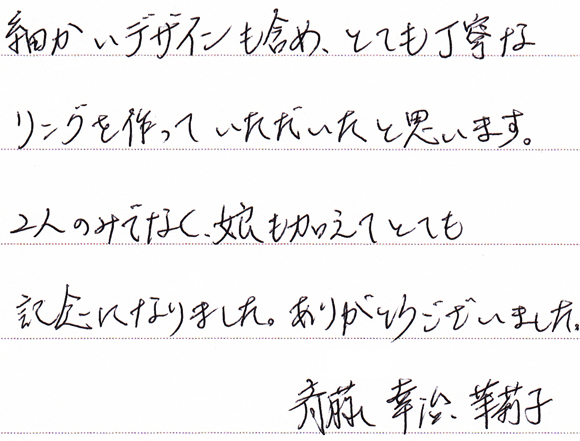 細かいデザインも含め、とても丁寧な
リングを作っていただいたと思います。
2人のみでなく、娘も加えてとても
記念になりました。ありがとうございました。
斉藤 幸治、華莉子